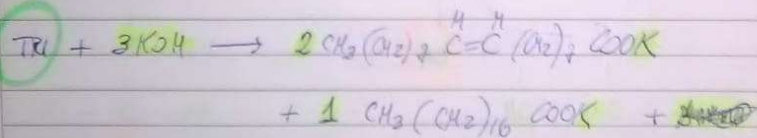 TRI + 3KOH → 2 CH3(CH2)7 C=C (CH2)7 COOK
H H
+ 1 CH3(CH2)16 COOK +